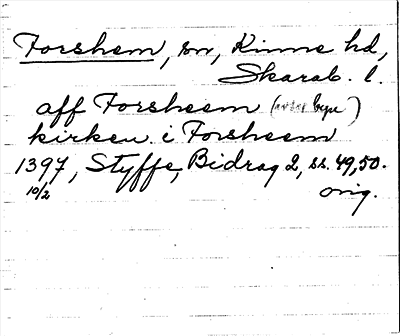 Forshem, sn, Kinne hd,
Skarab. l.
aff Forsheem ( byn)
kirken i Forsheem
1397, Styffe, Bidrag 2, ss. 49, 50.
10/2 orig.